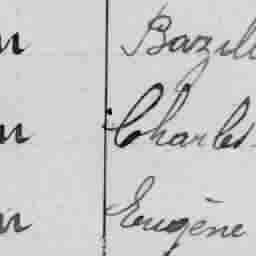 Bazill
Charles
Eugène